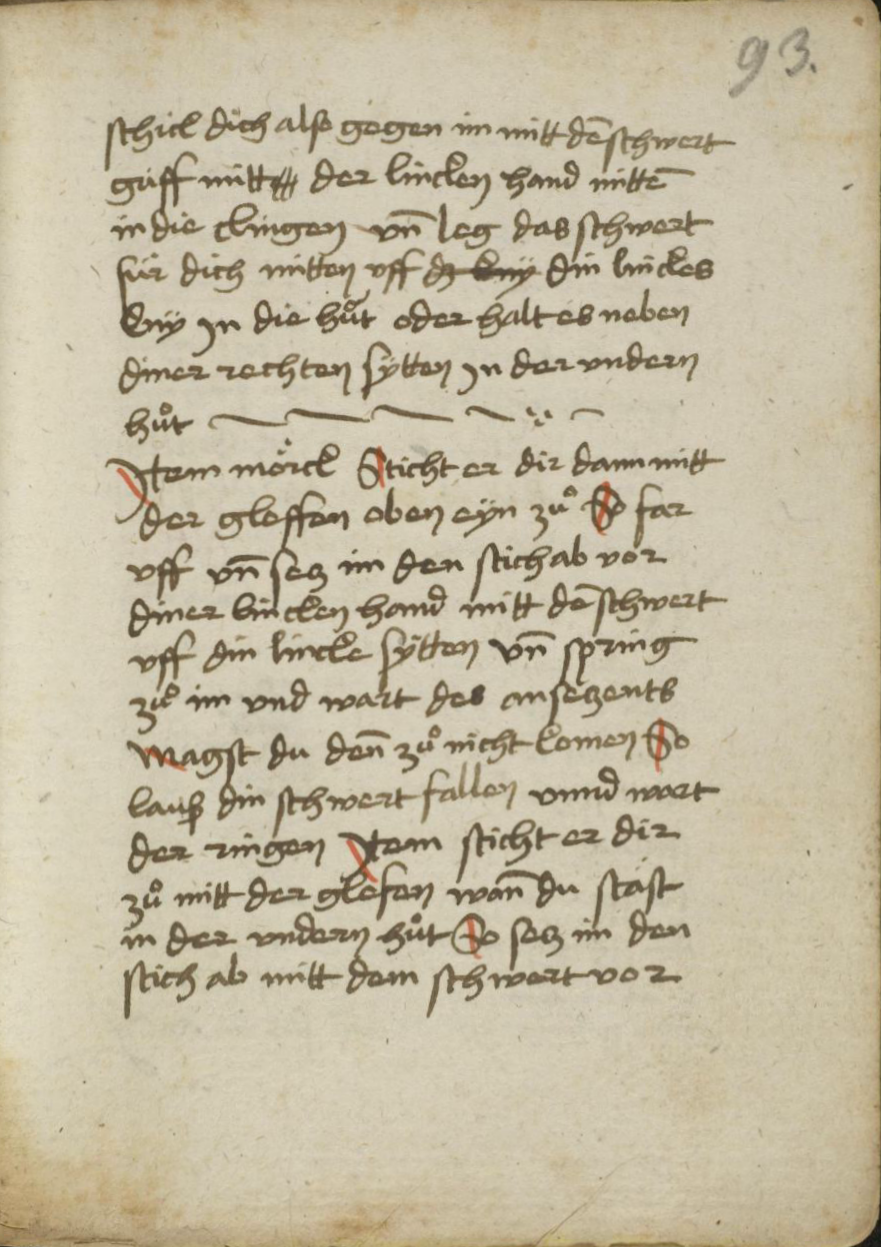 93.
schick dich also gegen im mitt dē schwert
griff mitt der lincken hand mittē
in die clingen vn̄ leg das schwert
für dich mitten vff dz kny din linckes
kny Jn die hůt oder halt es neben
diner rechten sÿtten Jn der vndern
hůt
Jtem mörck Sticht er dir dann mitt
der gleffen oben eyn zů So far
vff vn̄ secz im den stich ab vor
diner lincken hand mitt dē schwert
vff din lincke sÿtten vn̄ spring
zů im vnd wart des anseczents
Magst du den̄ zů nicht komen So
lauß din schwert fallen vnnd wart
der ringen Jtem sticht er dir
zů mitt der glefen wan̄ du stäst
in der vndern hůt So secz im den
stich ab mitt dem schwert vor